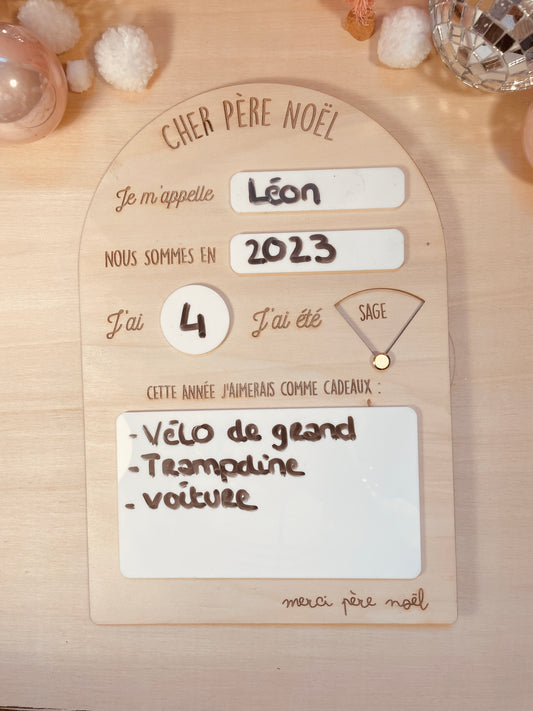 CHER PÈRE NOËL
Je m'appelle Léon
NOUS SOMMES EN 2023
J'ai 4 J'ai été SAGE
CETTE ANNÉE J'AIMERAIS COMME CADEAUX :
- VÉLO de grand
- Trampoline
- voiture
merci père noël